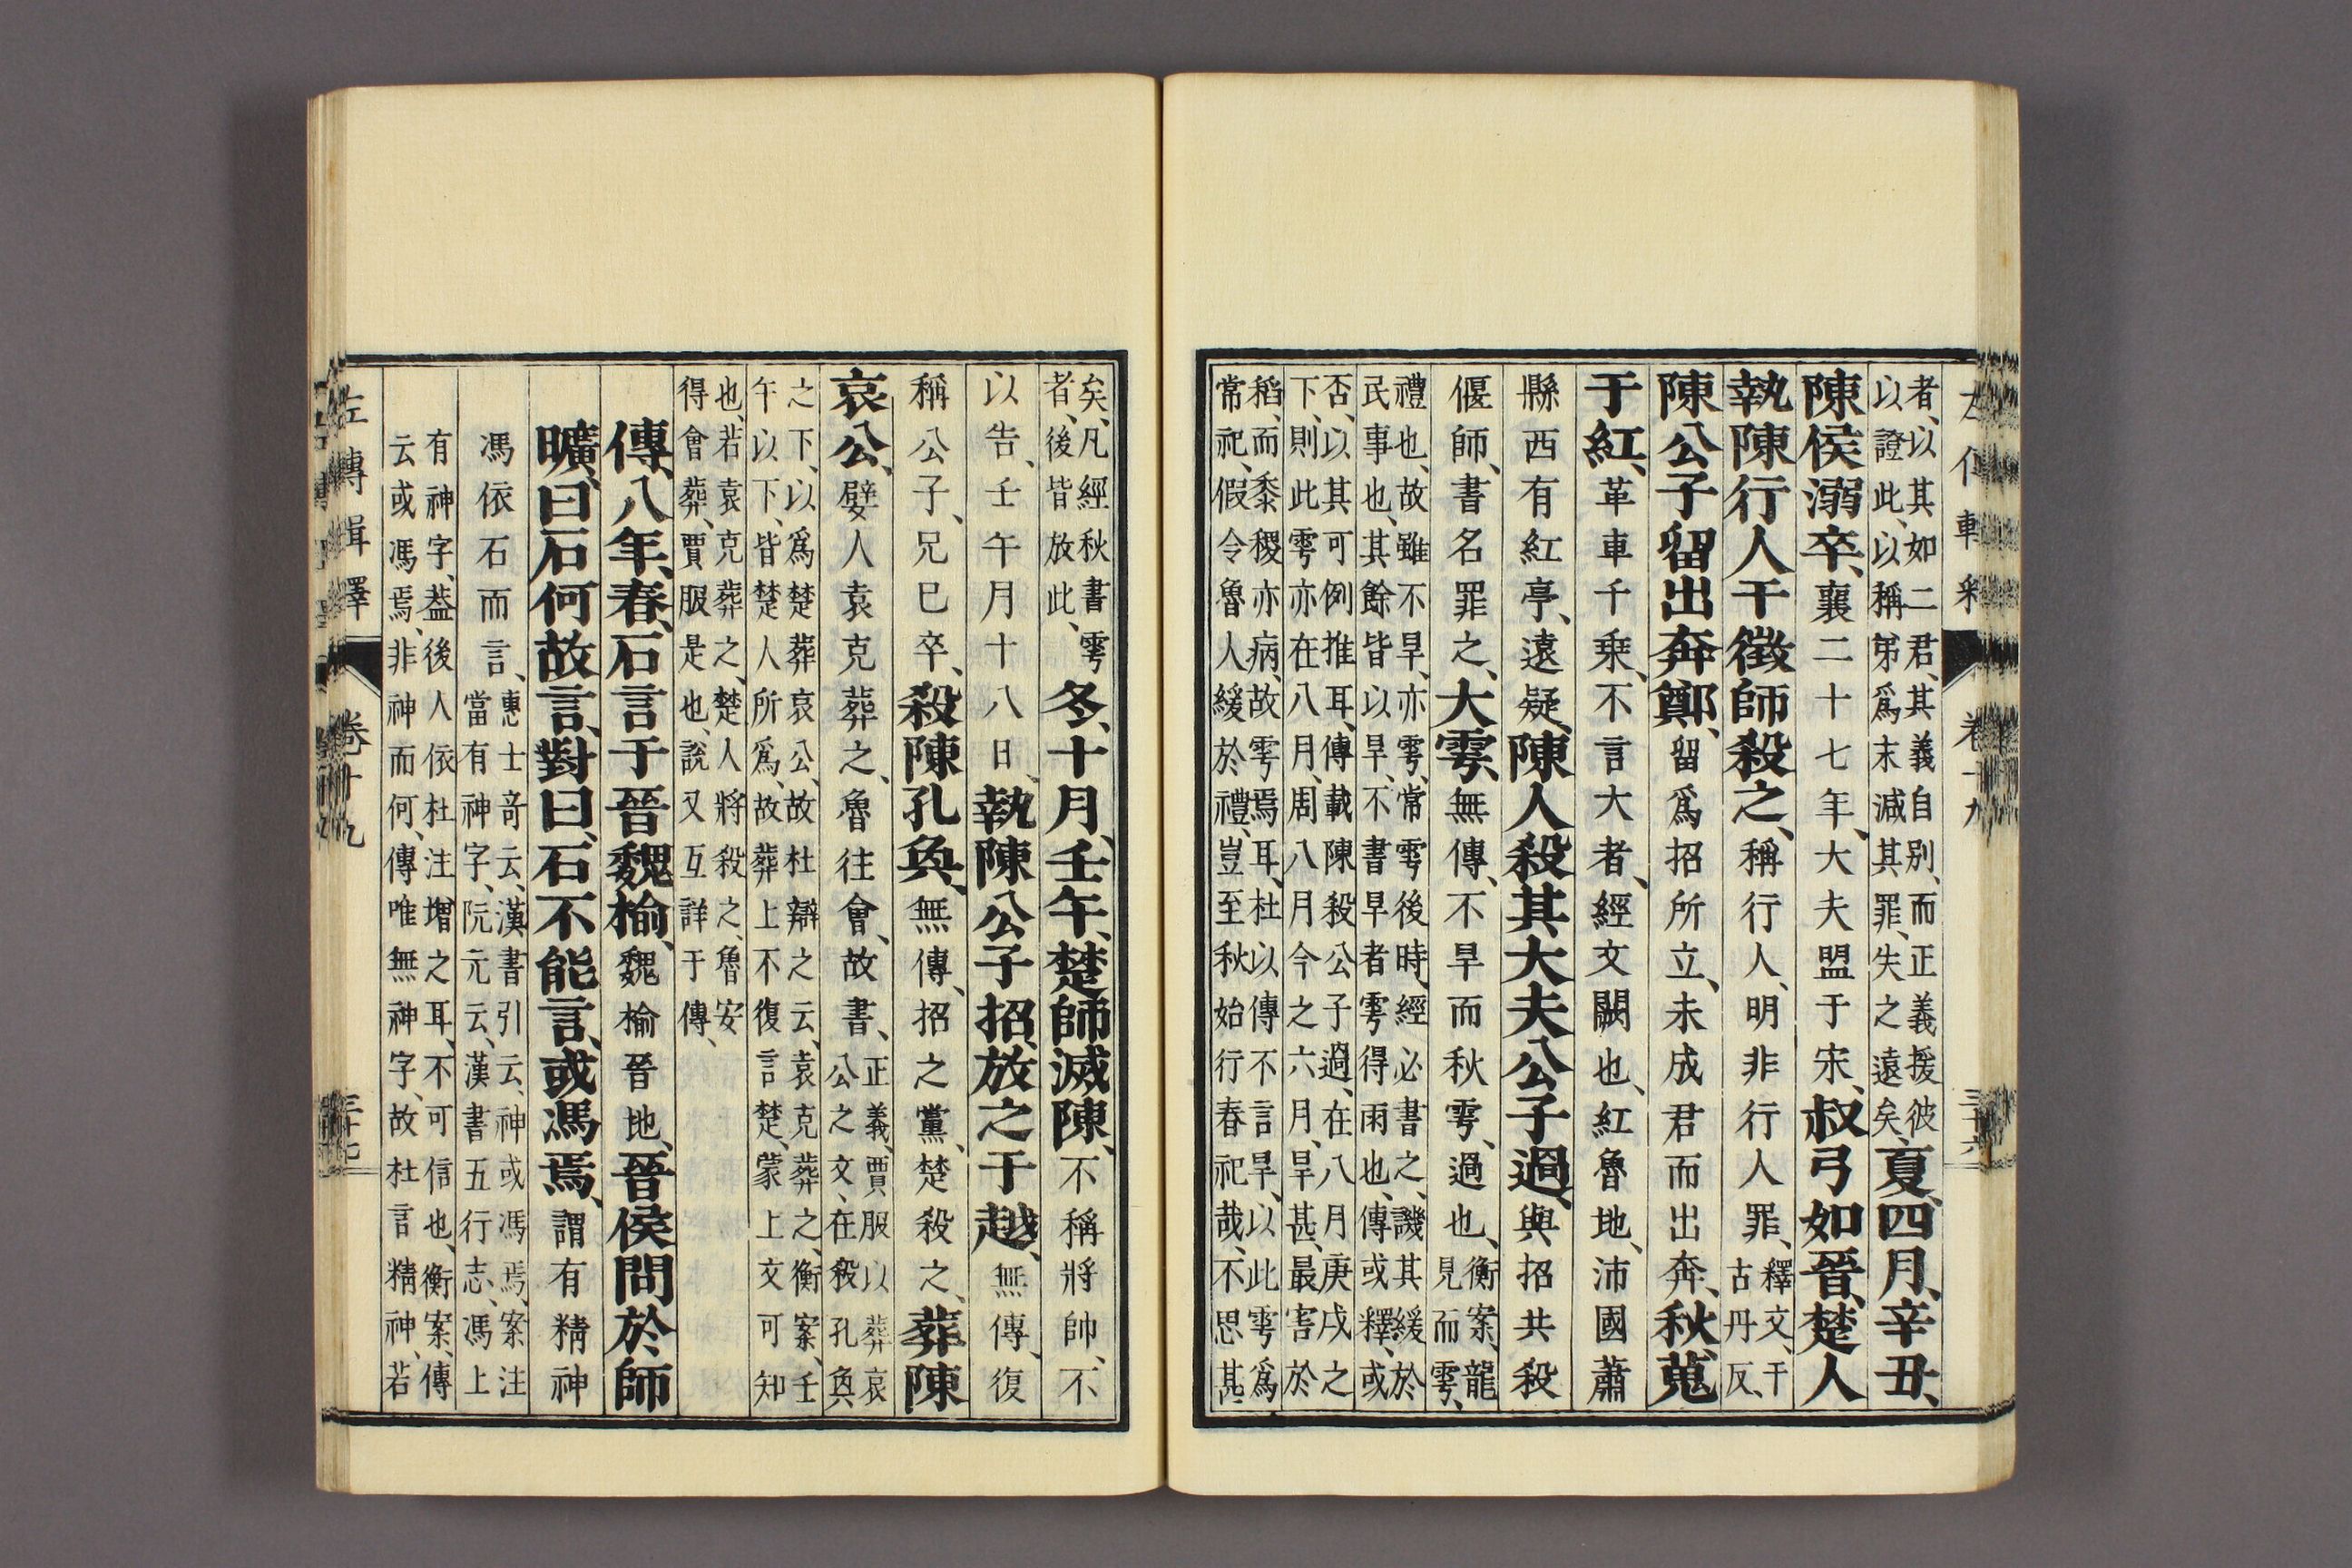 者、以其如二君、其義自別、而正義援彼
以證此、以稱弟爲末減其罪、失之遠矣、夏、四月、辛丑、
陳侯溺卒、襄二十七年、大夫盟于宋、叔弓如晉、楚人
執陳行人干徵師殺之、稱行人、明非行人罪、釋文、干
古丹反、
陳公子留出奔鄭、留爲招所立、未成君而出奔、秋、蒐
于紅、革車千乗、不言大者、經文闕也、紅魯地、沛國蕭
縣西有紅亭、遠疑、陳人殺其大夫公子過、與招共殺
偃師、書名罪之、大雩、無傳、不旱而秋雩、過也、衡案、龍
見而雩、
禮也、故雖不旱、亦雩、常雩後時、經必書之、譏其緩於
民事也、其餘皆以旱、不書旱者雩得雨也、傳或釋、或
否、以其可例推耳、傳載陳殺公子過、在八月庚戌之
下、則此雩亦在八月、周八月今之六月、旱甚、最害於
稻、而黍稷亦病、故雩焉耳、杜以傳不言旱、以此雩爲
常祀、假令魯人緩於禮、豈至秋始行春祀哉、不思甚
矣、凡經秋書雩
者、後皆放此、冬、十月、壬午、楚師滅陳、不稱將帥、不
以告、壬午月十八日、執陳公子招、放之于越、無傳、復
稱公子、兄已卒、殺陳孔奐、無傳、招之黨、楚殺之、葬陳
哀公、嬖人袁克葬之、魯往會、故書、正義、賈服以葬哀
公之文、在殺孔奐
之下、以爲楚葬哀公、故杜辯之云、袁克葬之、衡案、壬
午以下、皆楚人所爲、故葬上不復言楚、蒙上文可知
也、若袁克葬之、楚人將殺之、魯安
得會葬、賈服是也、說又互詳于傳、
傳、八年、春、石言于晉魏榆、魏榆晉地、晉侯問於師
曠、曰石何故言、對曰、石不能言、或馮焉、謂有精神
馮依石而言、惠士奇云、漢書引云、神或馮焉、案注
當有神字、阮元云、漢書五行志、馮上
有神字、葢後人依杜注增之耳、不可信也、衡案、傳
云或馮焉、非神而何、傳唯無神字、故杜言精神、若
左傳輯釋　卷十九　三十七